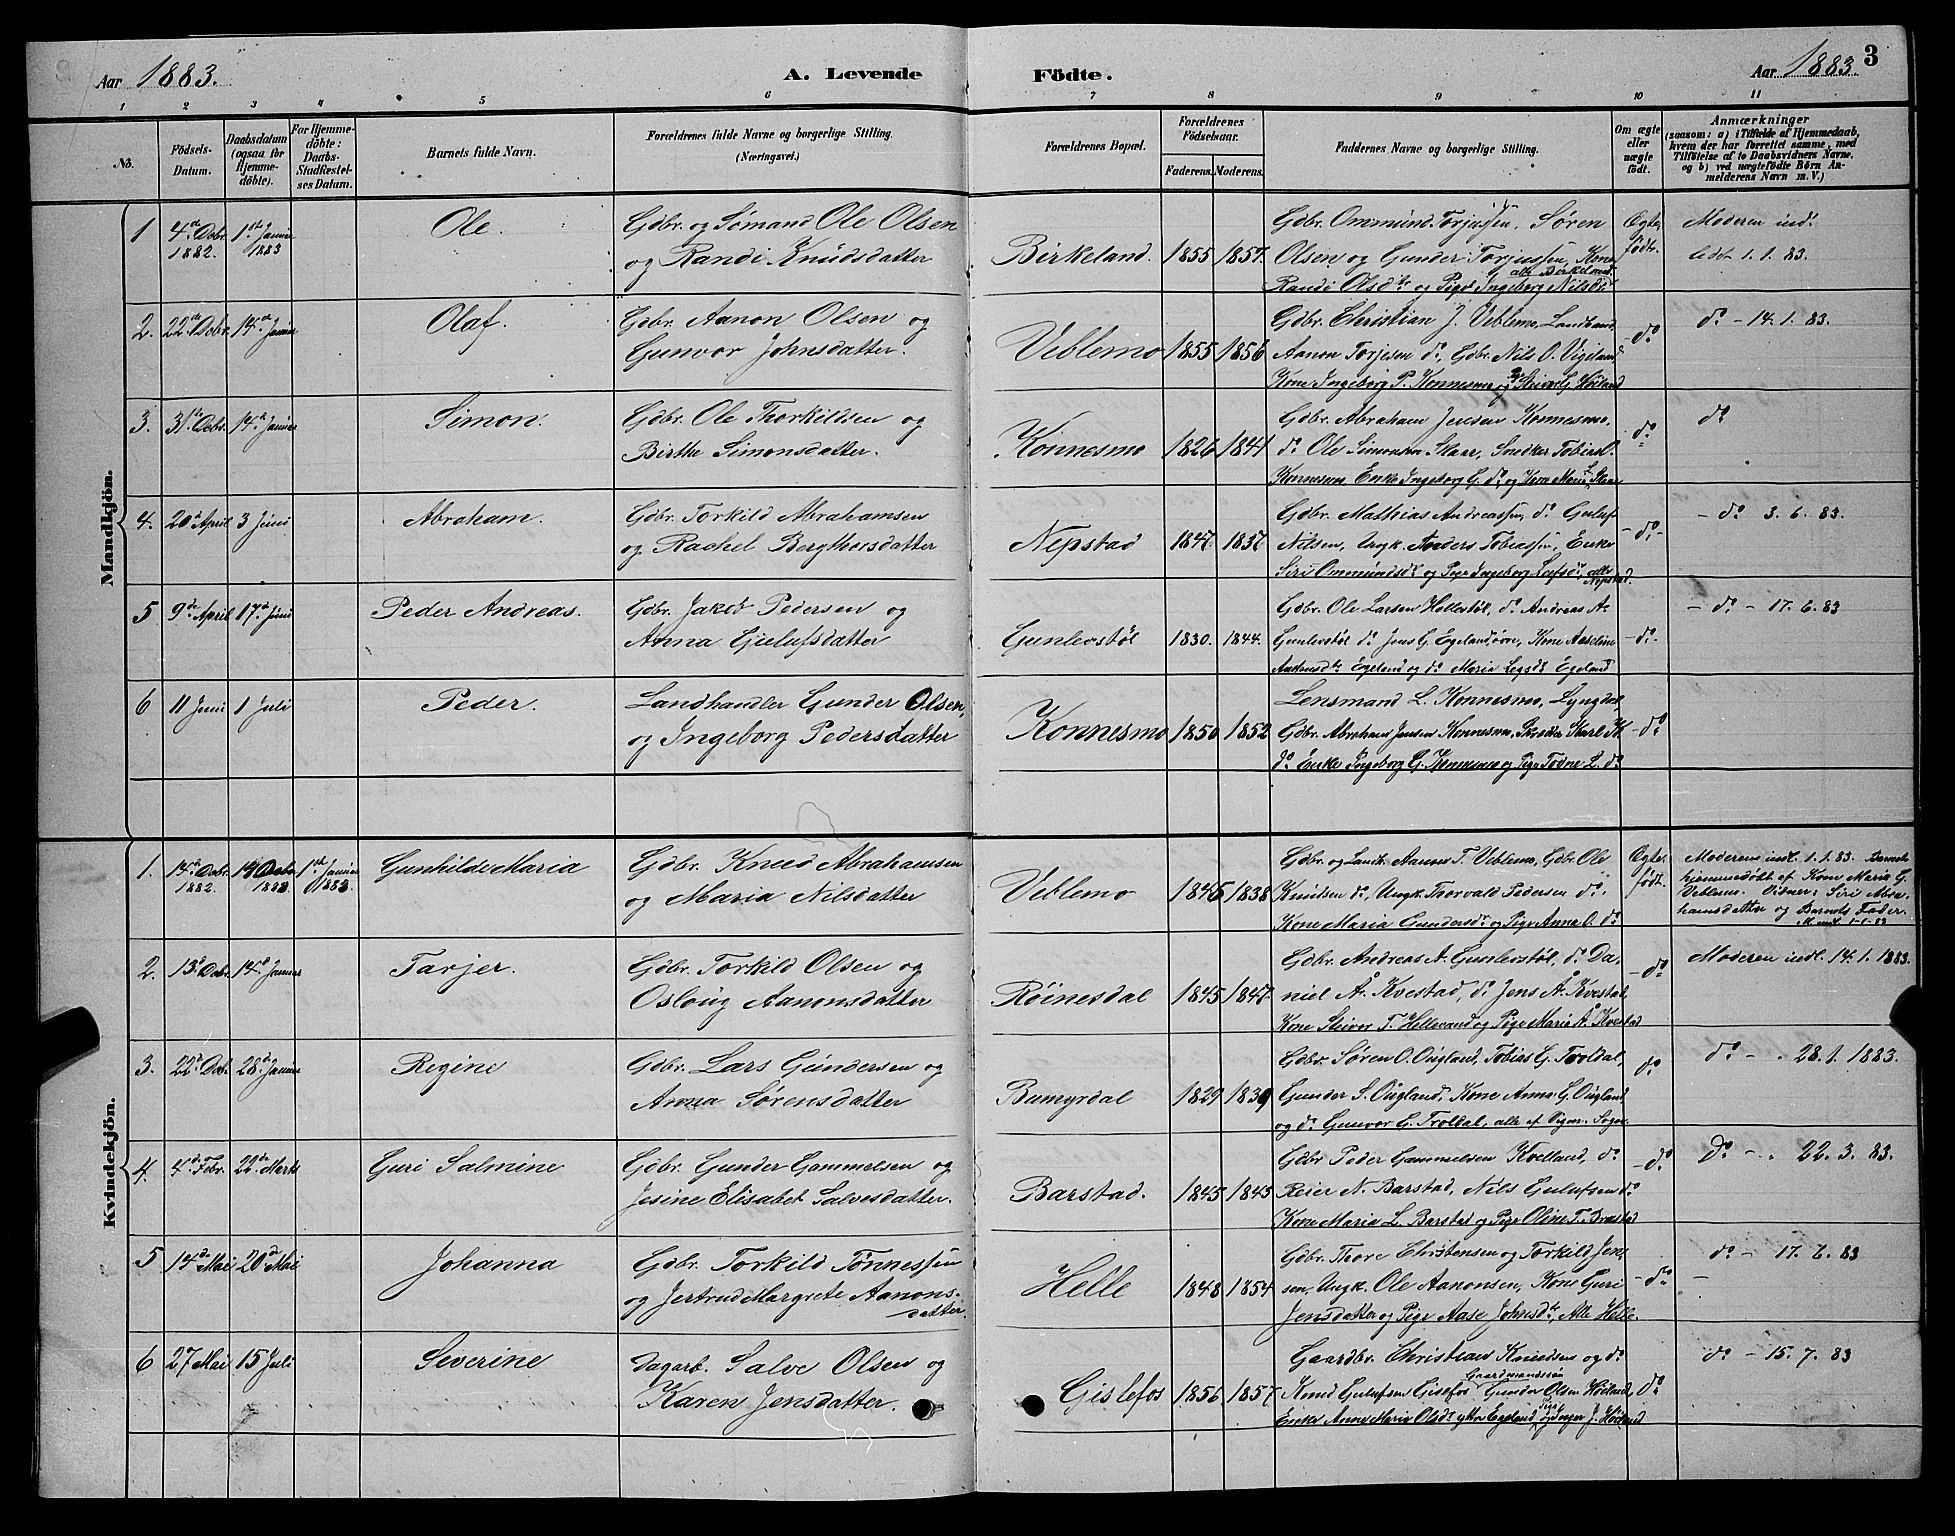 Aar 1883.
A. Levende Födte.
Aar 1883. 3
1 2 3 4 5 6 7 8 9 10 11
No.
Födsels-Datum.
Daabsdatum (ogsaa for Hjemmedöbte).
For Hjemmedöbte: Daabs-Stadfæstelses Datum.
Barnets fulde Navn.
Forældrenes fulde Navne og borgerlige Stilling. (Næringsvei.)
Forældrenes Bopæl.
Forældrenes Födselsaar.
Faderens. Moderens.
Faddernes Navne og borgerlige Stilling.
Om ægte eller uægte födt.
Anmærkninger
(saasom: a) i Tilfælde af Hjemmedaab, hvem der har forrettet samme, med Tilföielse af to Daabsvidners Navne, og b) ved uægtefödte Börn Anmelderens Navn m. V.)
Mandkjön.
1 4de Debr. 1882. 1ste Januar 1883 Ole. Gdbr. og Sømand Ole Olsen
og Randi Knudsdatter Birkeland. 1855 1857.
Gdbr. Ommund Torjussen, Søren
Olsen og Gunder Torjussen, Kone
alle Birkeland.
Randi Olsdtr og Pige Ingeborg Nilsdtr
Ægte födt. Moderen indledt 1.1.83.
2. 22de Debr. 14de Januar Olaf. Gdbr. Aanon Olsen og
Gunvor Johnsdatter. Veblemo 1855 1856
Gdbr. Christian J. Veblemo, Landhand.
Aanon Torjesen do, Gdbr. Nils O. Vigeland
Kone Ingeborg P. Konnesmo og Pige Steivor G. Høiland
- do do - 14.1.83.
3. 31te Debr. 14de Januar Simon. Gdbr. Ole Thorkildsen og
Birthe Simonsdatter. Konnesmo 1826 1841
Gdbr. Abraham Jensen Konnesmo.
do Ole Simonsen Skaar, Snedker Tobias O.
Konnesmo Enke Ingeborg G. do og Kone Maria L. Skaar
- do do
4. 20de April 3 Juni Abraham. Gdbr. Torkild Abrahamsen
og Rachel Bergthorsdatter Nepstad 1847. 1837
Gdbr. Mathias Andreassen, do Guluf
Nilsen, Ungk. Anders Tobiassen, Enke
Siri Ommundsdtr og Pige Ingeborg Lufsdtr, alle Nepstad.
- do - - do 3.6.83.
5 9de April 17de Juni Peder Andreas. Gdbr. Jakob Pedersen og
Anna Gulufsdatter Gunlevstöl 1830. 1844.
Gdbr. Ole Larsen Hellestöl, do Andreas A.
Gunlevstöl do Jens G. Egeland øvre, Kone Aaseline
Egeland og do Maria Egeland
- do - - do - 17.6.83
6 11 Juni 1 Juli Peder. Landhandler Gunder Olsen,
og Ingeborg Pedersdatter Konnesmo 1850 1852
Lensmand L. Konnesmo, Lyngdal
Gdbr. Abraham Jensen Konnesmo, Karl K.
do Enke Ingeborg G. Konnesmo og Pige Todne L. do
- do
Kvindekjön.
1. 14de Debr. 1882. 19 Debr 1882. 1ste Januar 1883. Gunhilde Maria Gdbr. Knud Abrahamsen
og Maria Nilsdatter Veblemo 1845 1838
Gdbr. og Landh. Aanon T. Veblemo, Gdbr. Ole
Knudsen do, Ungk. Thorvald Pedersen do.
Kone Maria Gundersdtr og Pige Anna O. do
Ægte födt. Moderens indl. 1.1.83. Barnet
hjemmedøbt af Kone Maria G.
Veblemo. Vidner: Siri Abrahamsdatter og Barnets Fader.
M. indl. 1-1-83
2. 13de Debr. 14de Januar Tarjer. Gdbr. Torkild Olsen og
Osloug Aanonsdatter Röinesdal 1845 1847
Gdbr. Andreas A. Gunlevstöl, do Daniel A. Kvestad, do Jens A. Kvestad,
Kone Steivor T. Hellevand og Pige Maria A. Kvestad
- do Moderen indl. 14.1.1883.
3. 22de Deb. 28de Januar Regine Gdbr. Lars Gundersen og
Anna Sørensdatter Bumyrdal 1829 1839
Gdbr. Søren O. Ougland, Tobias G. Troldal,
Gunder S. Ougland, Kone Anna G. Ougland
og do Gunvor G. Troldal, alle af Vigm. Sogn.
do do - . 28.1.1883.
4. 4de Febr. 22de Marts Guri Salmine Gdbr. Gunder Gammelsen og
Jesine Elisabet Salvesdatter. Barstad. 1845 1845
Gdbr Peder Gammelsen Kvelland, do
Reier N. Barstad, Nils Gulufsen do
Kone Maria L. Barstad og Pige Oline T. Brastad
- do do - . 22.3.83.
5 14de Mai 20de Mai Johanna Gdbr. Torkild Tønnessen
og Jertrud Margrete Aanonsdatter. Helle 1848 1854
Gdbr. Thore Christensen og Torkild Jensen, Ungk. Ole Aanonsen, Kone Guri
Jensdatter og Pige Aase Johnsdtr, Alle Helle.
- do do - 17.6.83
6 27 Mai 15 Juli Severine Dagarb. Salve Olsen og
Karen Jensdatter. Gislefos 1856 1857
Gaardbr. Christian Knudsen og do
Gaardmandssön
Knud Gulufsen Gislefos Gunder Olsen Høiland,
Enke Anne Marie Olsdtr ytre Egeland og Pige Inger J. Høiland
do do - 15.7.83